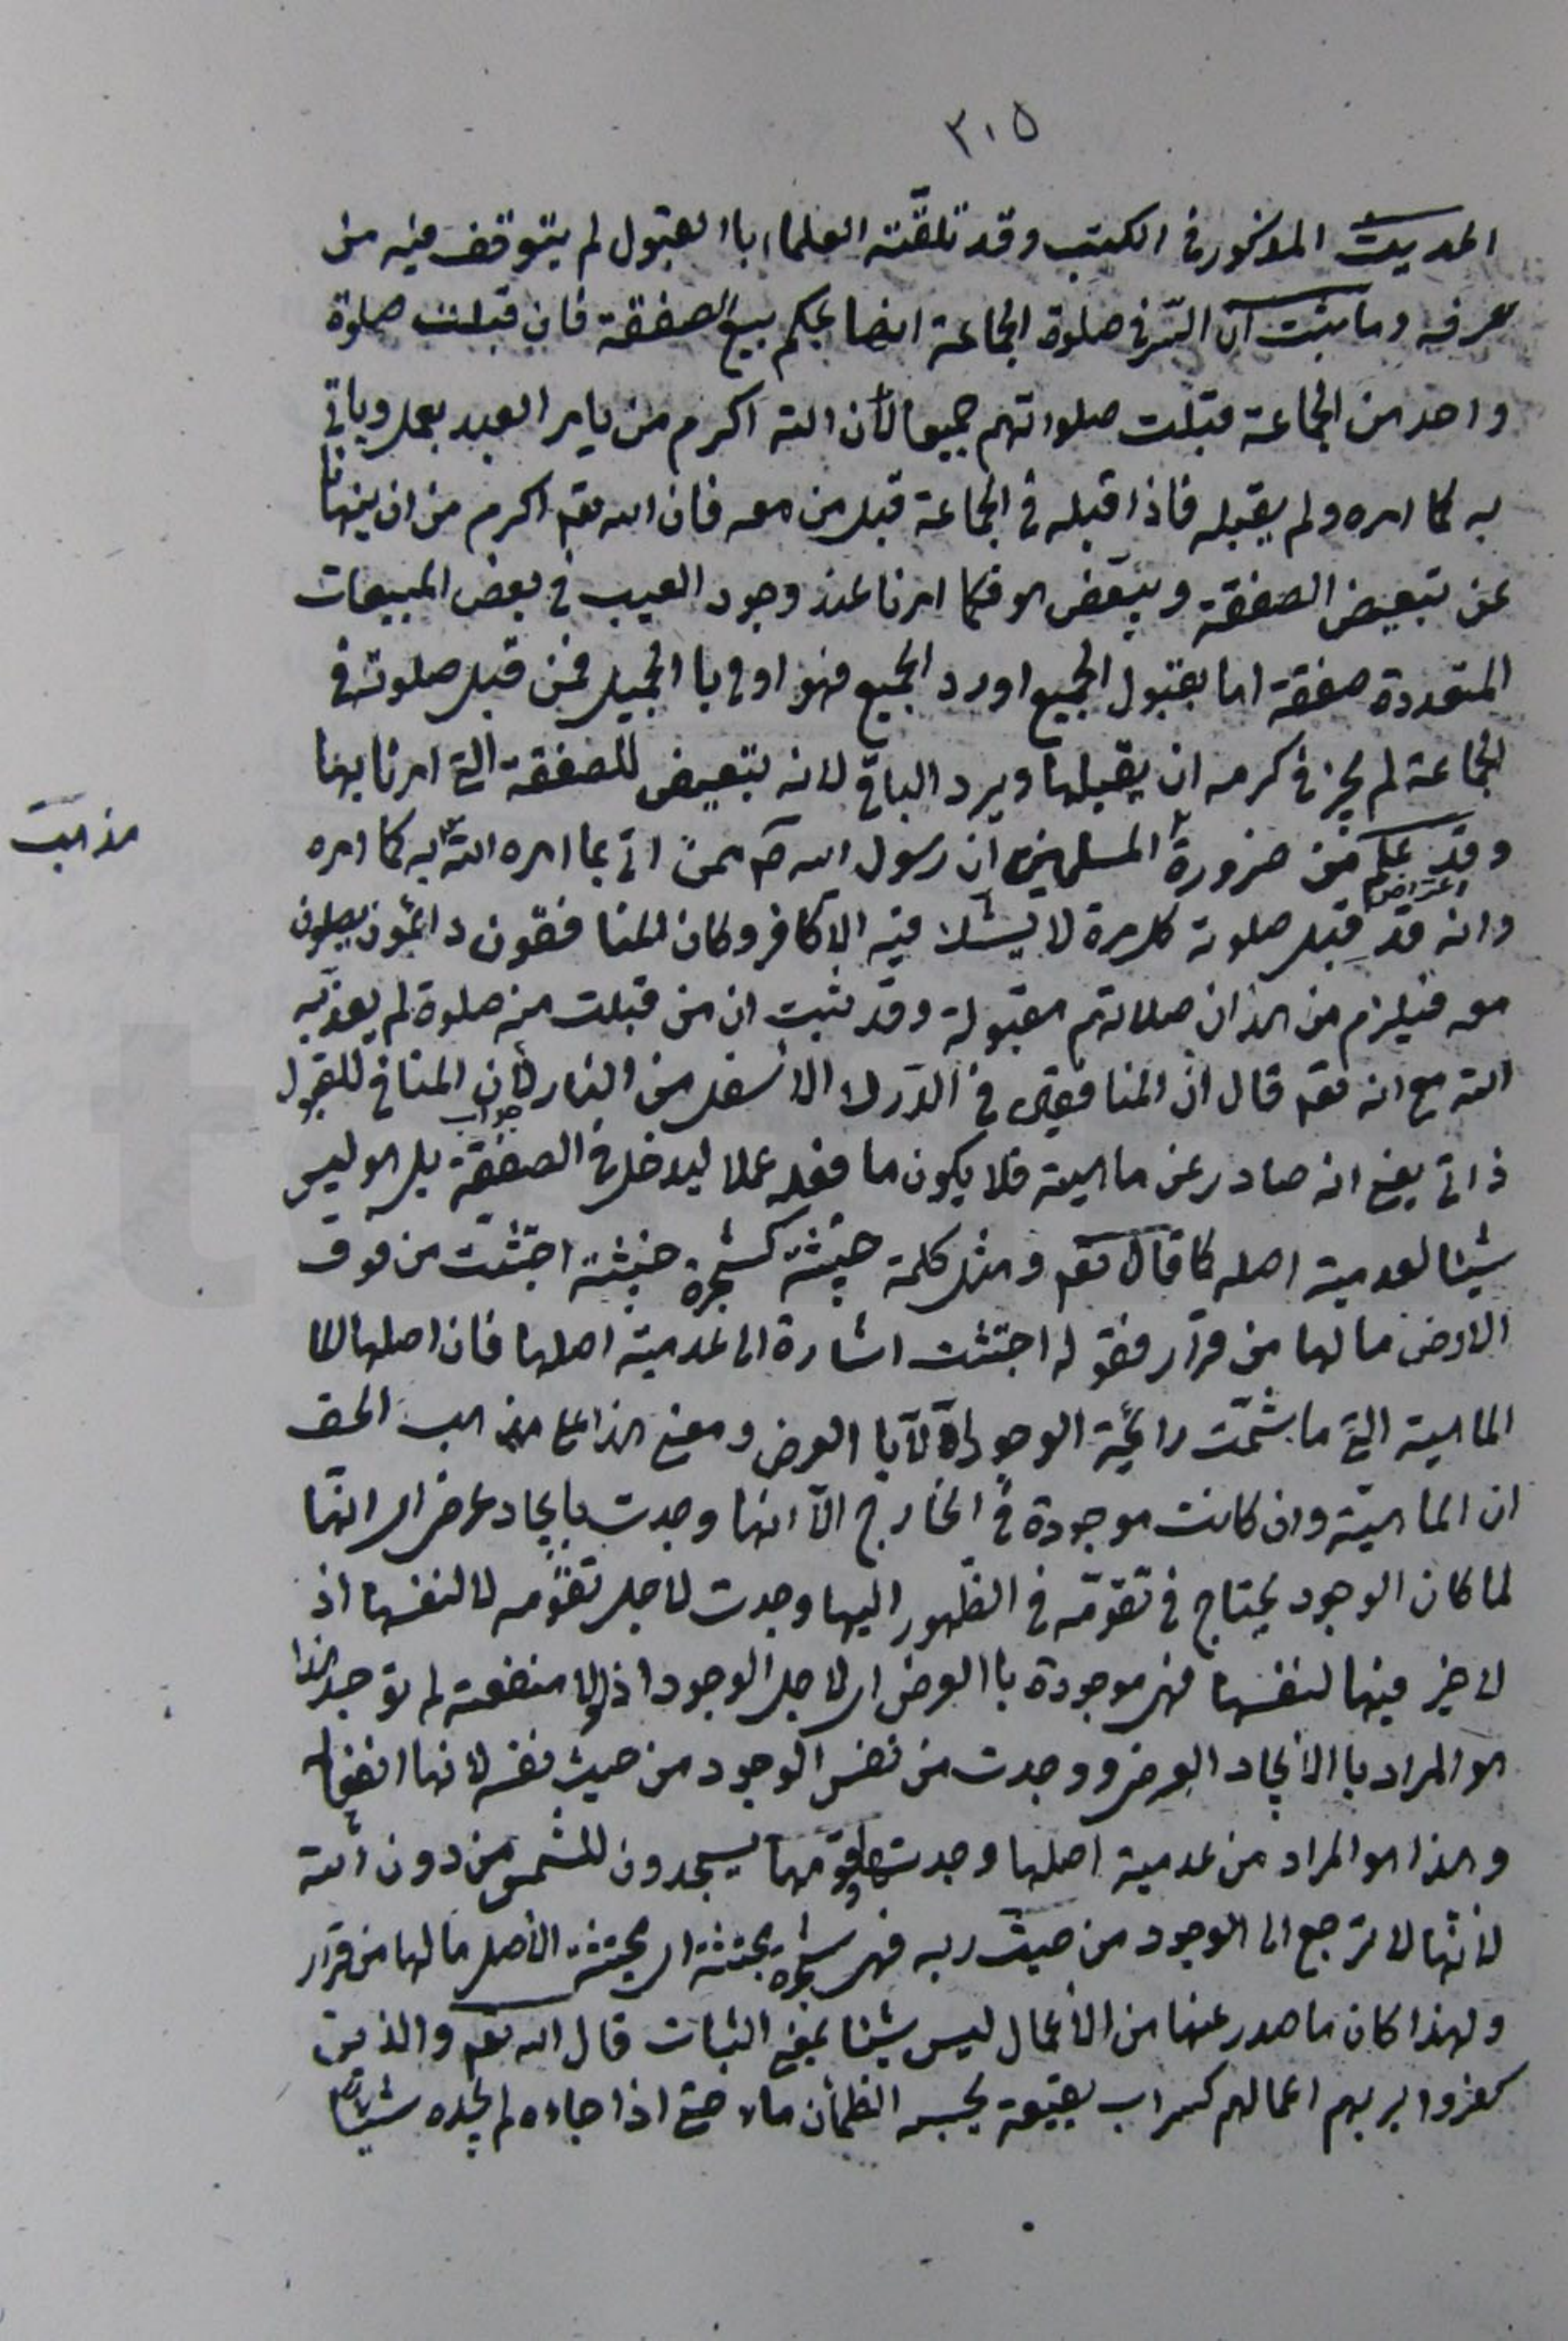 ٣١٥
الحديث المذكور في الكتب وقد تلقّته العلماء باالقبول لم يتوقف فيه من
عرفه وما ثبت انّ السّر في صلوة الجماعة انها بحكم بيع الصفقة فان قبلت صلوة
واحد من الجماعة قبلت صلواتهم جميعا لأن الله اكرم من يامر العبد بعمل وياتي
به كما امره ولم يقبله فاذا قبله في الجماعة قبل من معه فان الله تعم اكرم من ان ينهانا
عن تبعيض الصفقة ويبعّض هو فكما امرنا عند وجود العيب في بعض المبيعات
المتعددة صفقة اما بقبول الجميع او رد الجميع فهو اولى باالجميل فمن قبل صلوته في
الجماعة لم يجز في كرمه ان يقبلها ويرد الباقي لانه تبعيض للصفقة التي امرنا بها
مذاهب
وقد علم من ضرورة المسلمين ان رسول الله ص ممن اتى بما امره الله به كما امره
اعتراض
وانه قد قبل صلوته كل مرة لا يشك فيه الا كافر وكان المنافقون دائمون يصلون
معه فيلزم من هذا ان صلاتهم مقبولة وقد ثبت ان من قبلت منه صلوة لم يعذّبه
الله مع انه تعم قال انّ المنافقين في الدّرك الاسفل من النار لأن المنافي للقبول
جواب
ذاتي يعني انه صادر عن ماهيته فلا يكون ما فعله عملا ليدخل في الصفقة بل هو ليس
شيئا لعدمية اصله كما قال تعم ومثل كلمة خبيثة كشجرة خبيثة اجتثّت من فوق
الارض ما لها من قرار فقوله اجتثت اشارة الى عدمية اصلها فان اصلها
الماهية التي ما شمّت رائحة الوجود الّا باالعرض ومعنى هذا على مذاهب الحق
ان الماهيّة وان كانت موجودة في الخارج الّا انها وجدت بايجاد عرض اي انها
لما كان الوجود يحتاج في تقوّمه في الظّهور اليها وجدت لاجل تقوّمه لا لنفسها اذ
لا خير فيها لنفسها فهي موجودة باالعرض اي لاجل الوجود اذ لولا منفعته لم توجد هذا
هو المراد باالايجاد العرض ووجدت من نفس الوجود من حيث نفسه لانها انفعاله
وهذا هو المراد من عدمية اصلها وجدتها وقومها يسجدون للشمس من دون الله
لأنها لا ترجع الى الوجود من حيث ربه فهي شجرة مجتثة اي مجتثة الأصل ما لها من قرار
ولهذا كان ما صدر عنها من الأعمال ليس شيئا بمعنى الثبات قال الله تعم والذين
كفروا بربهم اعمالهم كسراب بقيعة يحسبه الظمأن ماء حتى اذا جاءه لم يجده شيئا